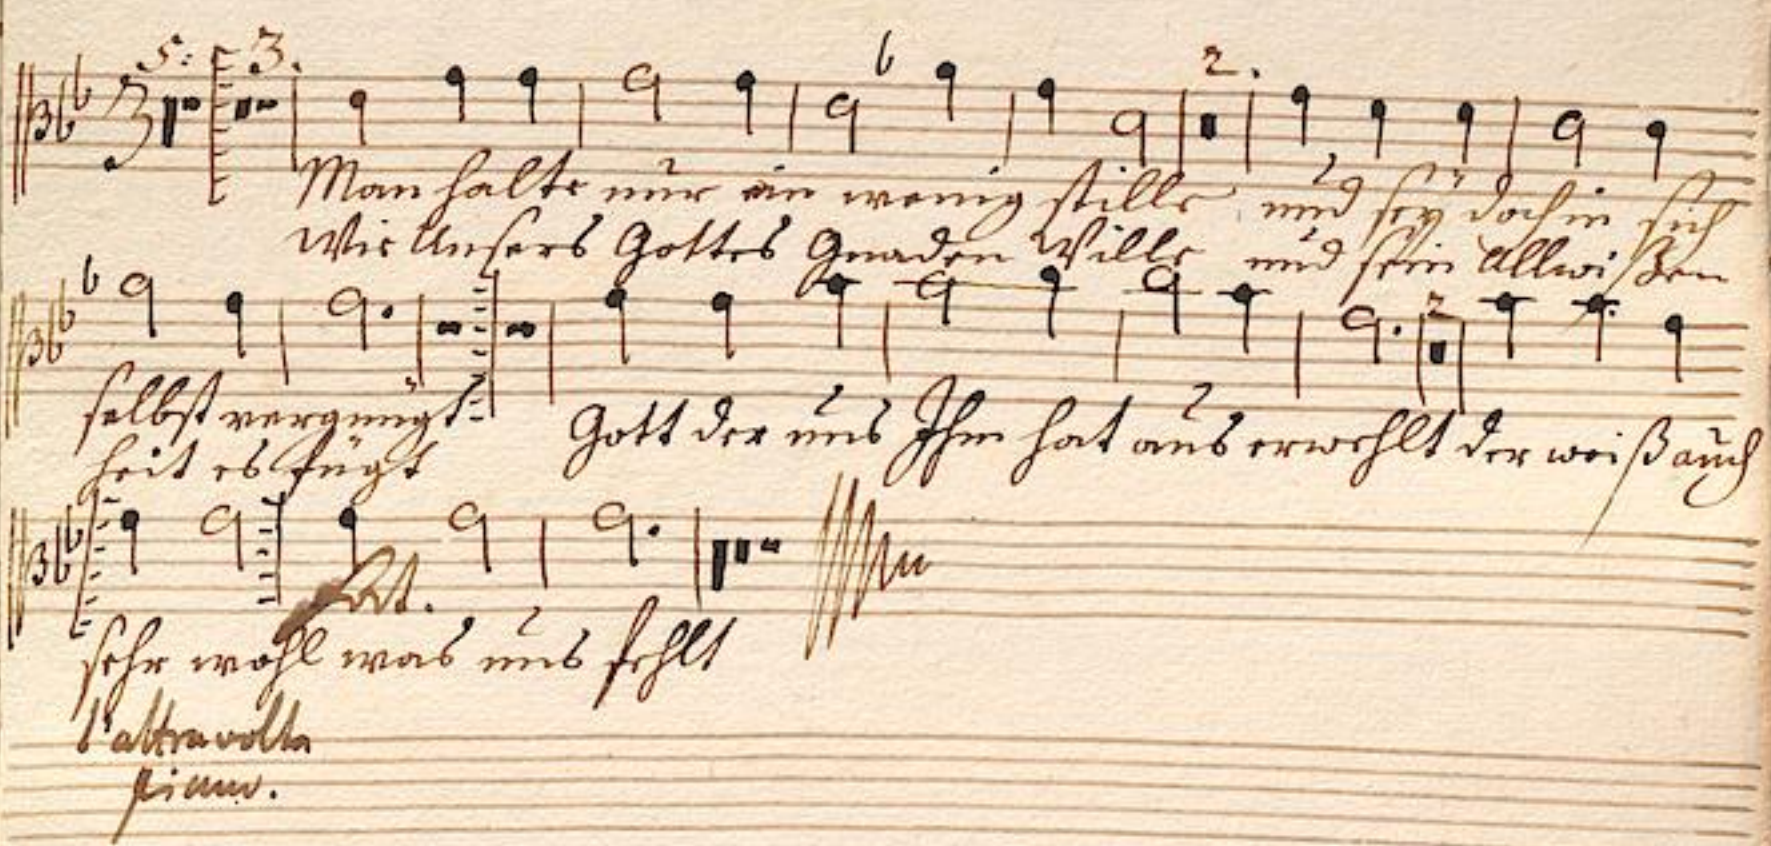 5: 3. 6 2.
Man halte nur ein wenig stille und seÿ doch in sich
Wie Unsers Gottes Gnaden Wille und sein Allwißen
6 2
selbst vergnügt Gott der uns Ihm hat aus erwehlt der weiß auch
heit es fügt
sehr wohl was uns fehlt
l'altra volta
piano.